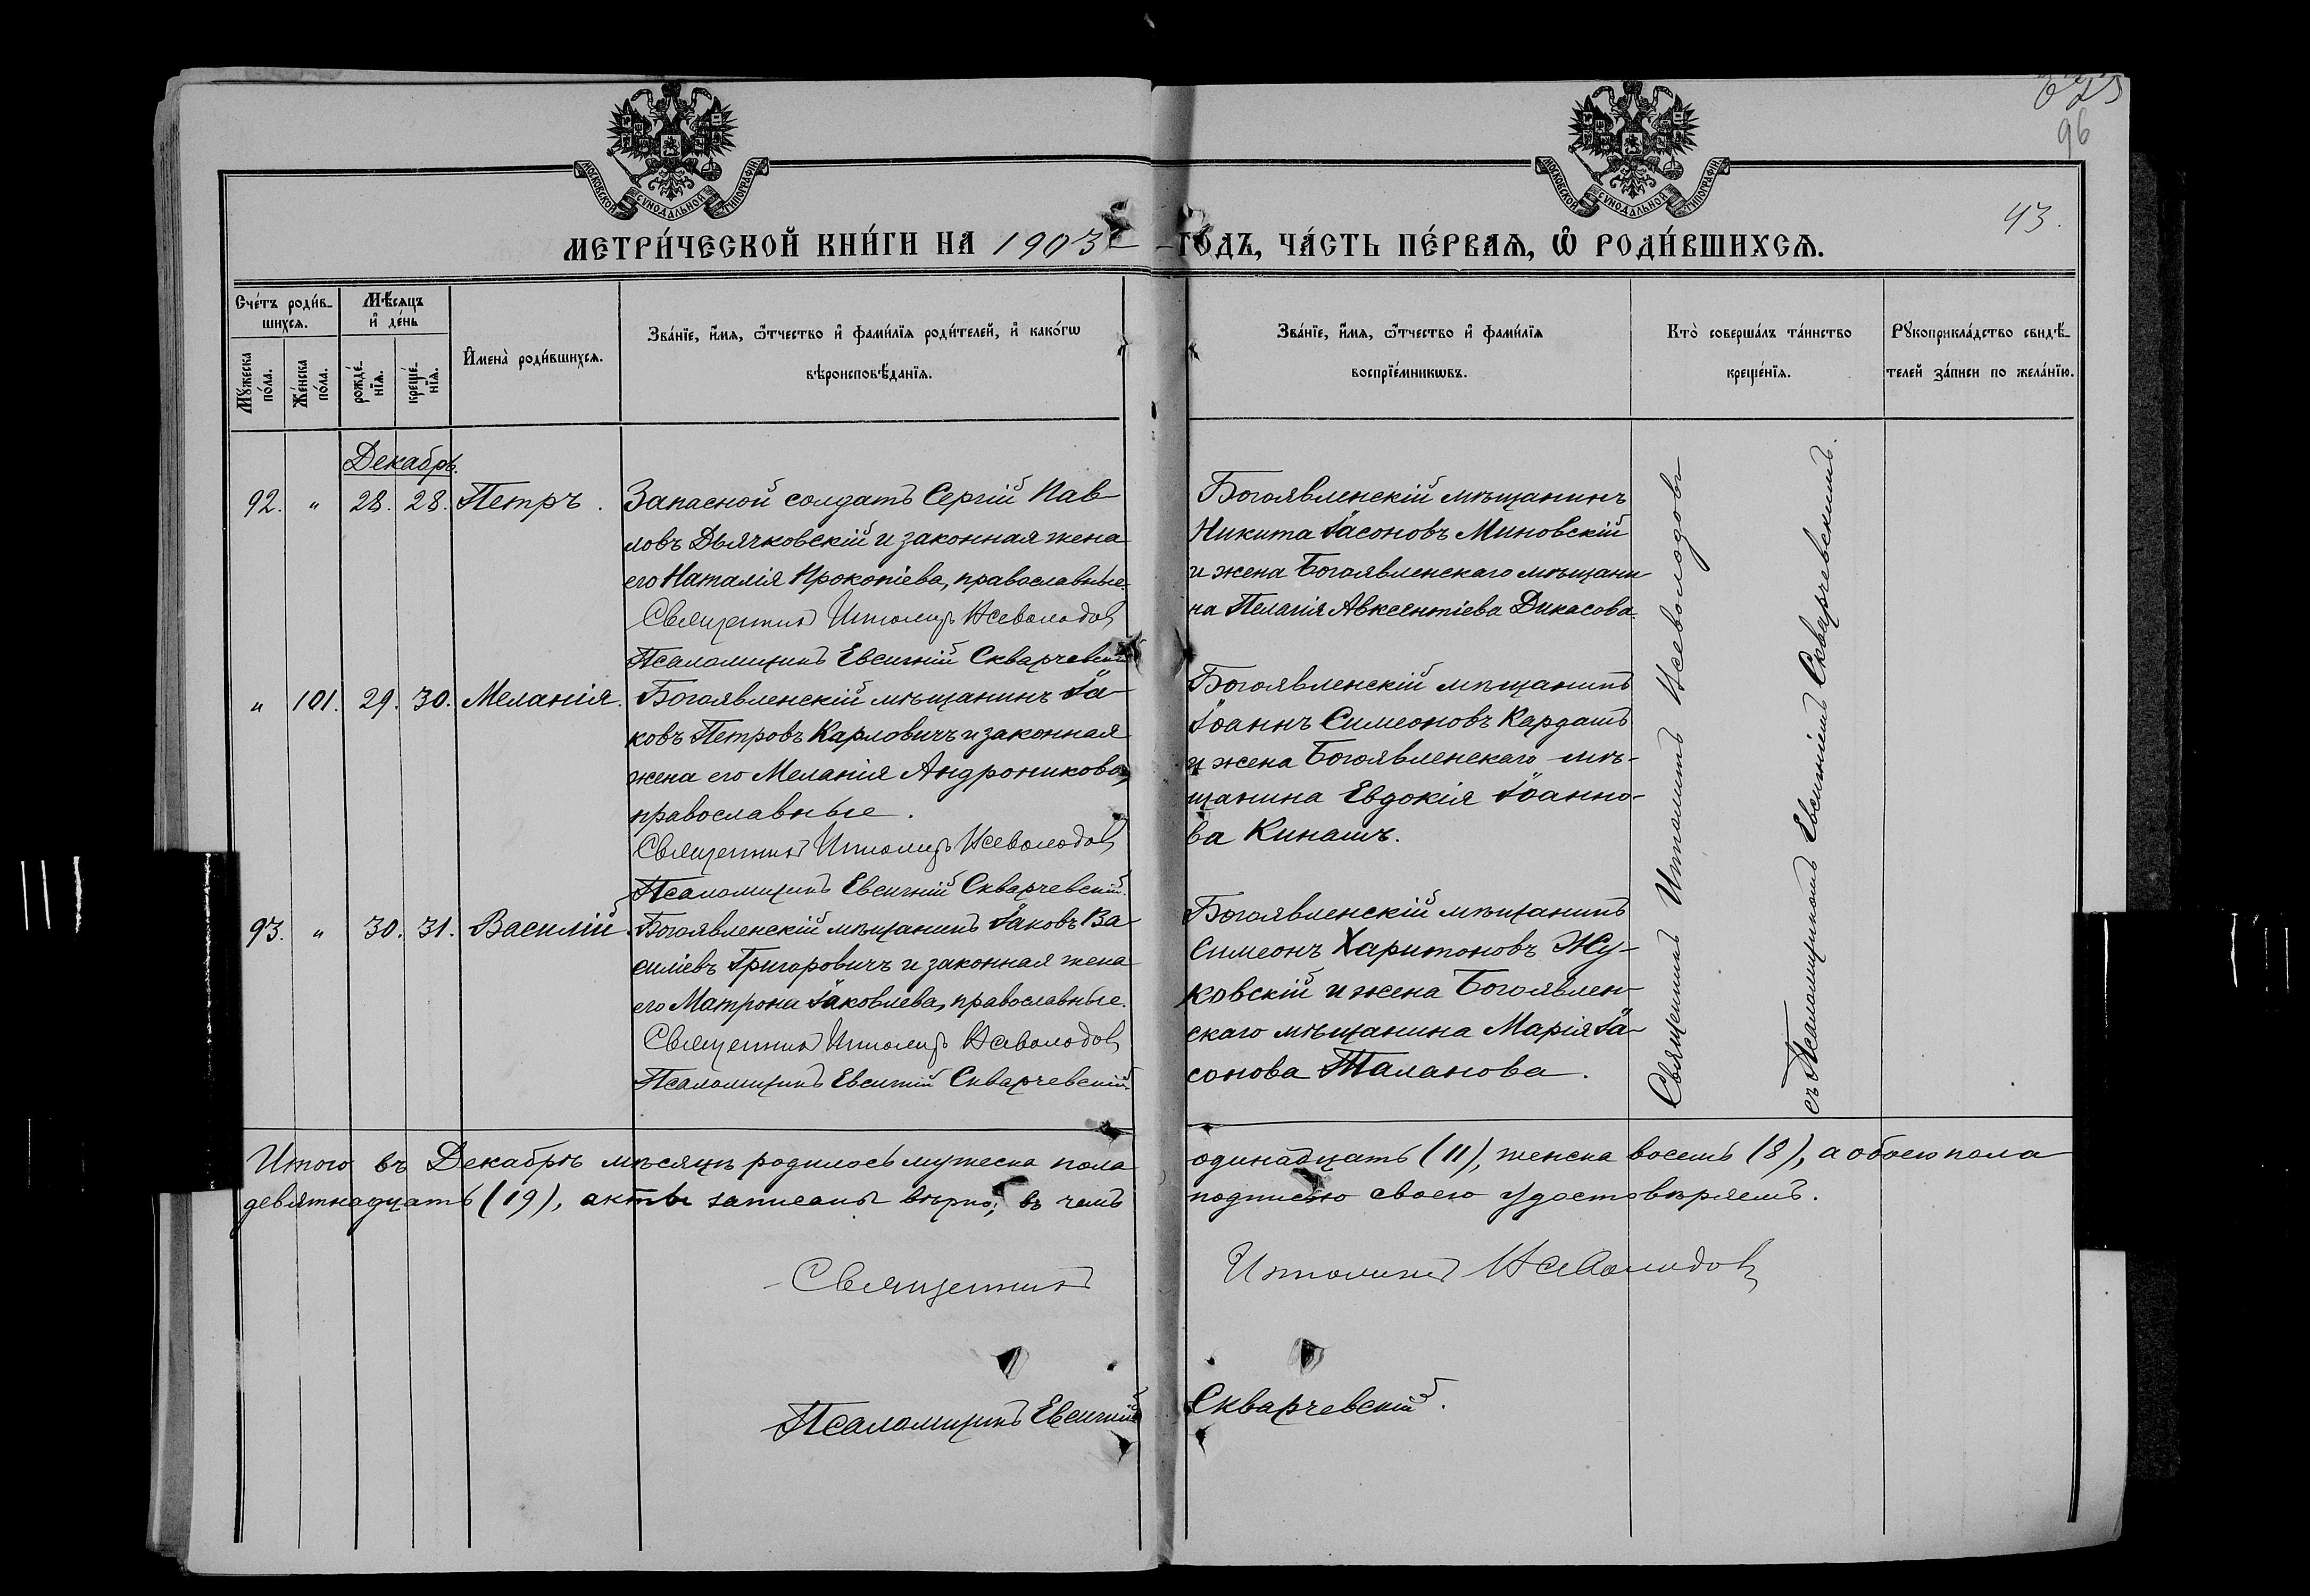 96
43.
МОСКОВСКОЙ СѴНОДАЛЬНОЙ ТИПОГРАФІИ
МОСКОВСКОЙ СѴНОДАЛЬНОЙ ТИПОГРАФІИ
МЕТРИ́ЧЕСКОЙ КНИ́ГИ НА 1903 ГОДЪ, ЧА́СТЬ ПЕ́РВАѦ, Ѡ҆ РОДИ́ВШИХСѦ.
Сче́тъ роди́в-
шихсѧ.
Мꙋ́жеска по́ла.
Же́нска по́ла.
Мѣ́сѧцъ
и҆ де́нь
рожде́-
нїѧ.
креще́-
нїѧ.
И҆мена̀ роди́вшихсѧ.
Зва́нїе, и҆́мѧ, ѻ҆́тчество и҆ фами́лїѧ роди́телей, и҆ како́гѡ
вѣроисповѣ́данїѧ.
Зва́нїе, и҆́мѧ, ѻ҆́тчество и҆ фами́лїѧ
воспрїе́мникѡвъ.
Кто̀ соверша́лъ та́инство
креще́нїѧ.
Рꙋкоприкла́дство свидѣ́-
телей за́писи по жела́нїю.
Декабрь.
92. " 28. 28. Петръ.
Запасной солдатъ Сергій Пав-
ловъ Дьячковскій и законная жена
его Наталія Прокопіева, православные.
Священникъ Ипполитъ Всеволодовъ
Псаломщикъ Евсигній Скварчевскій
Богоявленскій мѣщанинъ
Никита Іасоновъ Миновскій
и жена Богоявленскаго мѣщани
на Пелагія Авксентіева Дикасова.
" 101. 29. 30. Меланія.
Богоявленскій мѣщанинъ Іа-
ковъ Петровъ Карловичъ и законная
жена его Меланія Андроникова,
православные.
Священникъ Ипполитъ Всеволодовъ
Псаломщикъ Евсигній Скварчевскій.
Богоявленскій мѣщанинъ
Іоаннъ Симеоновъ Кардашъ
и жена Богоявленскаго мѣ-
щанина Евдокія Іоанно-
ва Кинашъ.
93. " 30. 31. Василій
Богоявленскій мѣщанинъ Іаковъ Ва-
силіевъ Григоровичъ и законная жена
его Матрона Іаковлева, православные.
Священникъ Ипполитъ Всеволодовъ
Псаломщикъ Евсигній Скварчевскій
Богоявленскій мѣщанинъ
Симеонъ Харитоновъ Жу-
ковскій и жена Богоявлен-
скаго мѣщанина Марія Іа-
сонова Таланова.
Священникъ Ипполитъ Всеволодовъ
съ Псаломщикомъ Евсигніемъ Скварчевскимъ.
Итого въ Декабрѣ мѣсяцѣ родилось мужеска пола одинадцать (11), женска восемь (8), а обоего пола
девятнадцать (19), акты записаны вѣрно; въ чемъ подписью своею удостовѣряемъ.
Священникъ Ипполитъ Всеволодовъ
Псаломщикъ Евсигній Скварчевскій.